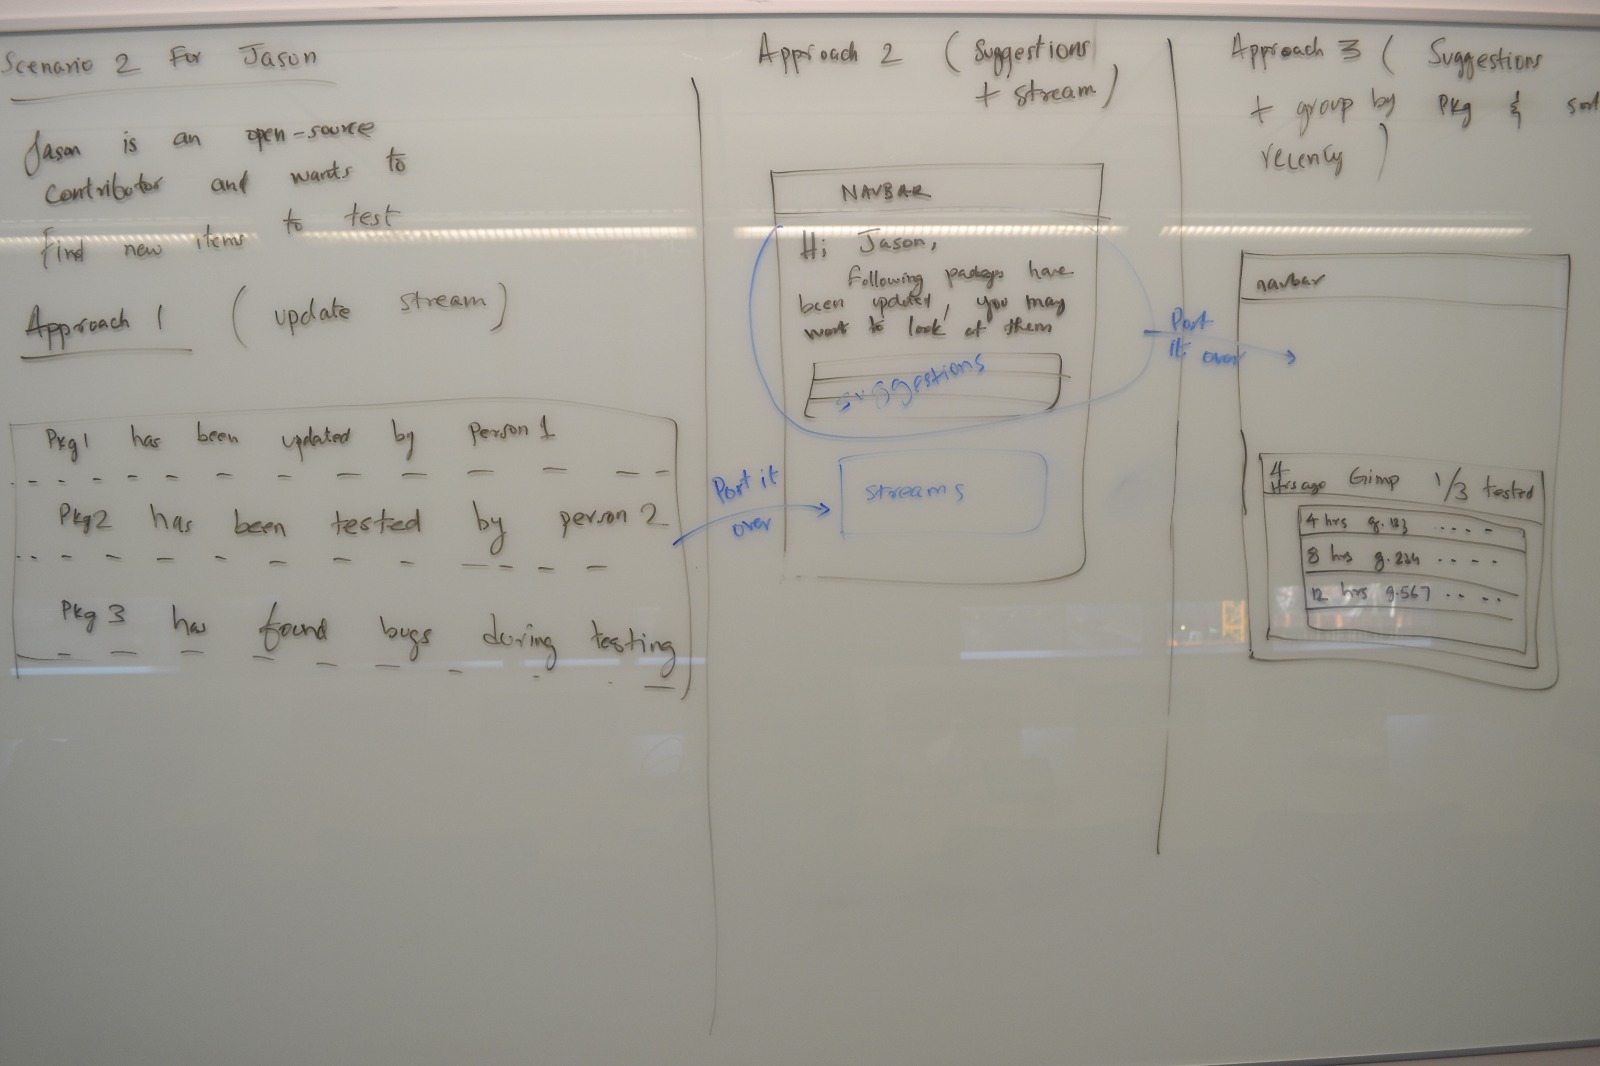 Scenario 2 For Jason
Jason is an open-source
contributor and wants to
find new items to test
Approach 1 (update stream)
Pkg1 has been updated by person 1
Pkg2 has been tested by person 2
Pkg 3 has found bugs during testing
Port it
over
Approach 2 (Suggestions
+ stream)
NAVBAR
Hi Jason,
Following packages have
been updated, you may
want to look at them
suggestions
streams
Port
it over
Approach 3 (Suggestions
+ group by Pkg & sort
recency)
navbar
4
Hrs ago Gimp 1/3 tested
4 hrs g.123 ....
8 hrs g.234 ....
12 hrs g.567 ....